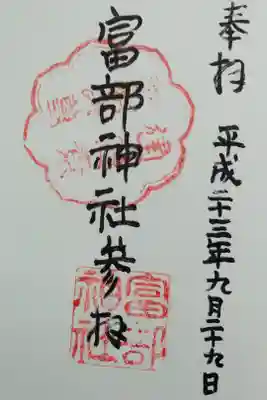 奉拝
平成二十三年九月二十九日
富部神社参拝
富部
神社